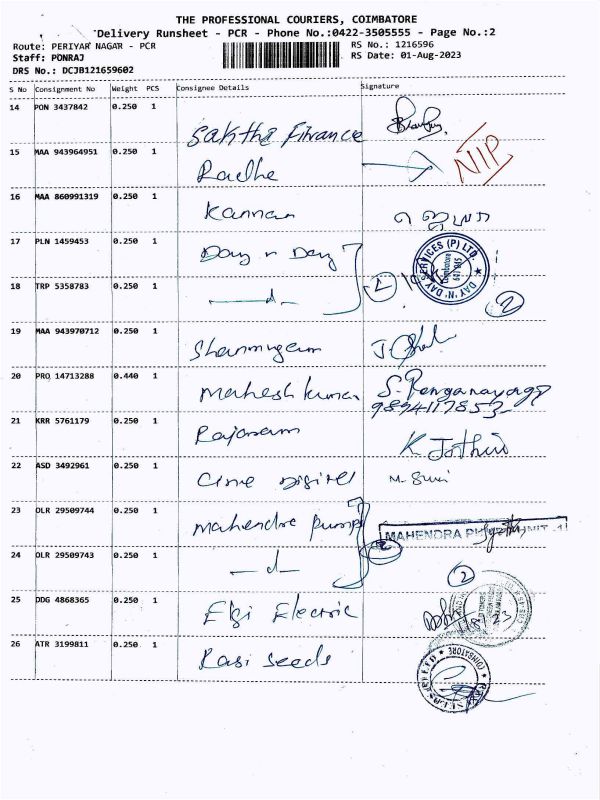 THE PROFESSIONAL COURIERS, COIMBATORE
Delivery Runsheet - PCR - Phone No.:0422-3505555 - Page No.:2
Route: PERIYAR NAGAR - PCR RS No.: 1216596
Staff: PONRAJ RS Date: 01-Aug-2023
DRS No.: DCJB121659602
S No Consignment No Weight PCS Consignee Details Signature
14 PON 3437842 0.250 1
Sakthi Finance
15 MAA 943964951 0.250 1
Radhe NIP
16 MAA 860991319 0.250 1
Kannan
17 PLN 1459453 0.250 1
Day n Day
DAY 'N' DAY SERVICES (P) LTD.
18 TRP 5358783 0.250 1
—d— 2
2
19 MAA 943970712 0.250 1
Shanmugam
20 PRO 14713288 0.440 1
Mahesh kumar S. Renganayagi
9894117853
21 KRR 5761179 0.250 1
Rajaram K. Jothi
22 ASD 3492961 0.250 1
Cine Digitel
23 OLR 29509744 0.250 1
Mahendre Pump
MAHENDRA
24 OLR 29509743 0.250 1
—d— 2
2
25 DDG 4868365 0.250 1
Elgi Electric
26 ATR 3199811 0.250 1
Rasi Seeds